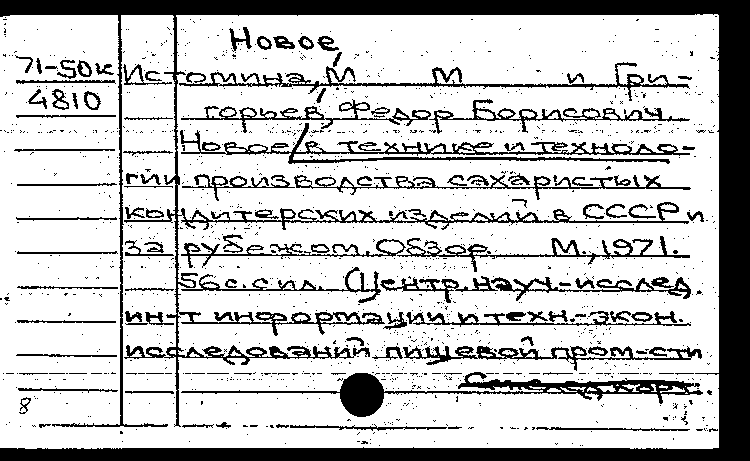 Новое
71-50к Истомина, М М и Гри-
4810 горьев, Федор Борисович.
Новое в технике и техноло-
гии производства сахаристых
кондитерских изделий в СССР и
за рубежом. Обзор. М., 1971.
56 с. с ил. (Центр. науч.-исслед.
ин-т информации и техн.-экон.
исследований пищевой пром-сти
8